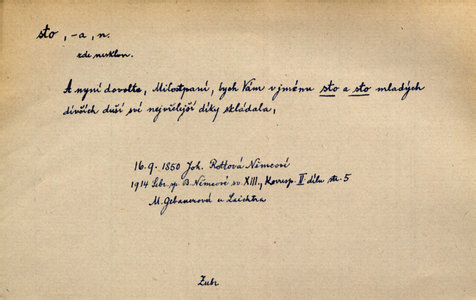 sto, -a, n.
zde nesklon.
A nyní dovolte, Milostpaní, bych Vám v jménu sto a sto mladých
dívčích duší své nejvřelejší díky skládala,
16.9. 1850 Joh. Rottová Němcové
1914 Sebr. sp. B. Němcové sv. XIII., Korresp. II dílu str. 5
M. Gebauerová u Laichtra
Zubr